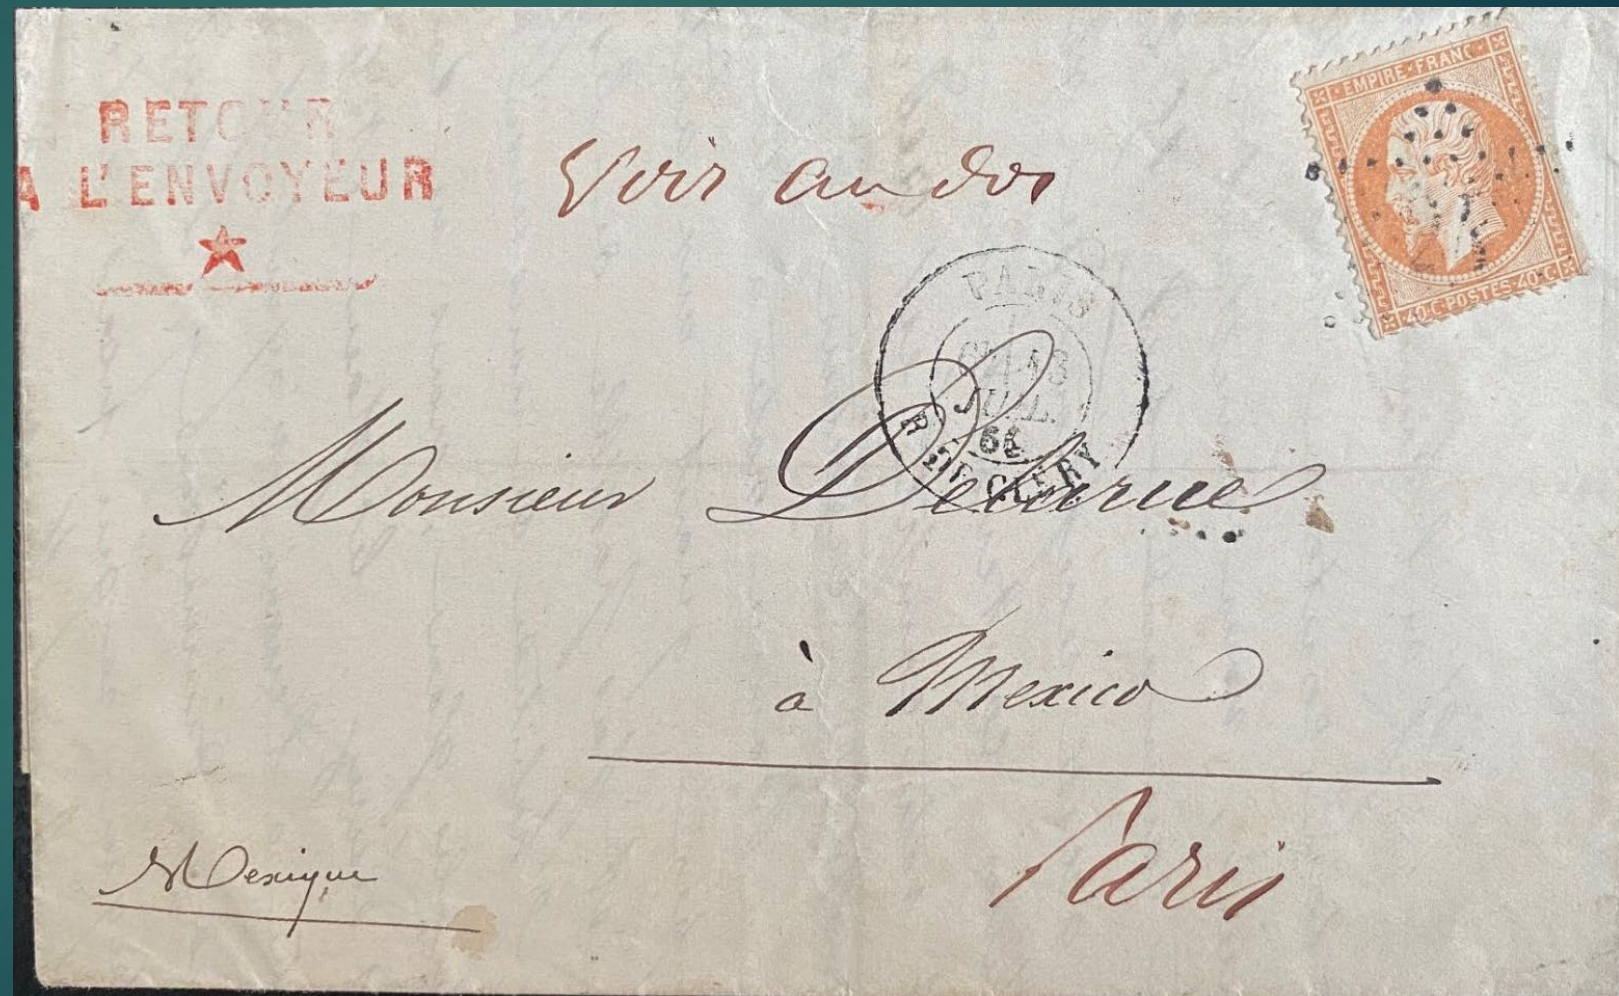 RETOUR
A L'ENVOYEUR
Voir au dos
EMPIRE FRANC
40·C·POSTES·40·C
PARIS
13
JUIL.
64
R. DE CLERY
Monsieur Delarue
à Mexico
Paris
Mexique